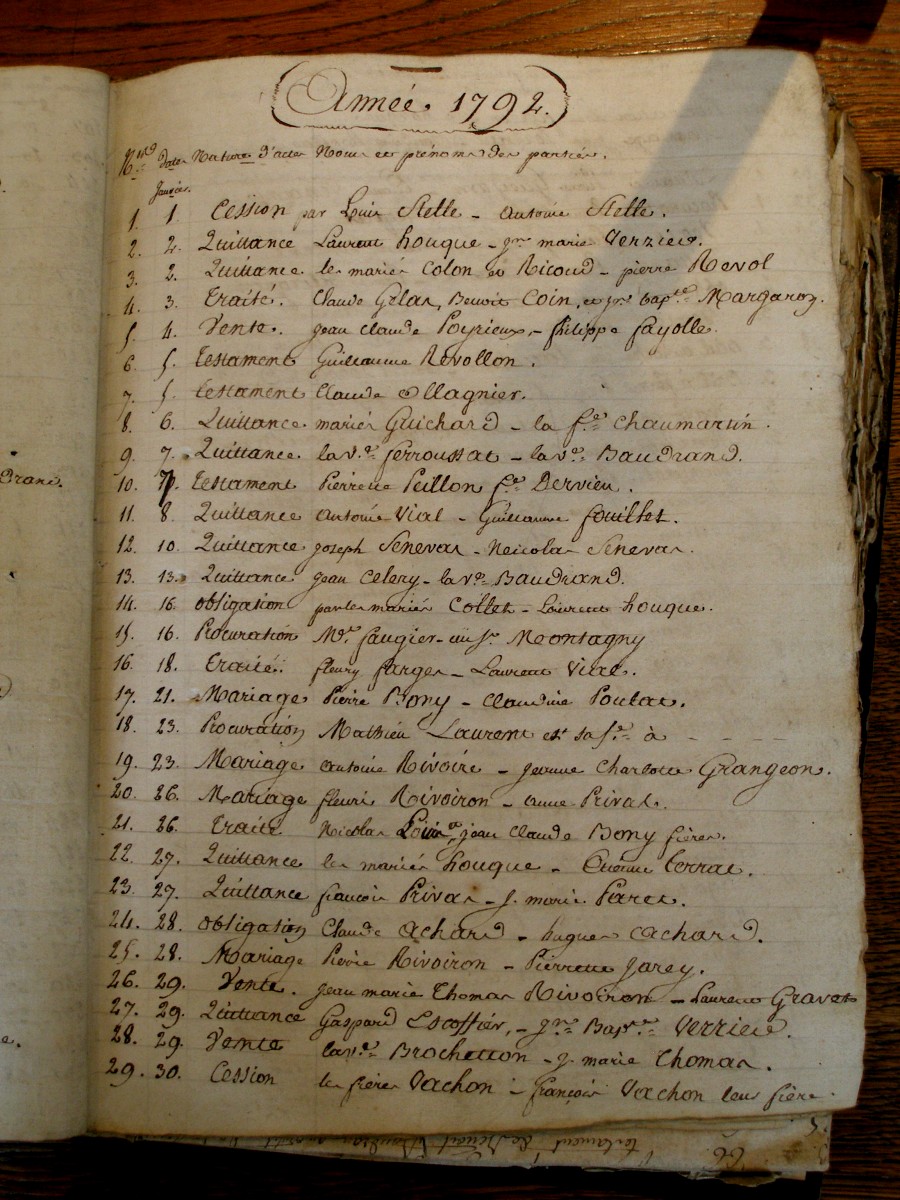 Année 1792.
N.ros dates Nature d'actes Noms et prénoms des parties.
Janvier.
1. 1. Cession par Louis Stelle - Antoine Stelle.
2. 2. Quittance Laurent houque - jn. marie Verzieu.
3. 2. Quittance les mariés Colon et Ricoud - pierre Revol
4. 3. Traité. Claude Gelas, Benoit Coin, et jn. bap.te Margaron.
5. 4. Vente. jean Claude Poyrieux - philippe fayolle.
6. 5. testament Guillaume Revollon.
7. 5. testament Claude Ollagnier.
8. 6. Quittance mariés Guichard - la f.e Chaumartin.
9. 7. Quittance la v.e ferroussat - la v.e Baudrand.
10. 7. testament Pierrette Peillon f.e Dervieu.
11. 8. Quittance antoine Vial - Guillaume fouillet.
12. 10. Quittance joseph Senevas - Neicolas Senevas.
13. 13. Quittance jean Celery - la v.e Baudrand.
14. 16. obligation par les mariés Collet - Laurent houque.
15. 16. Procuration M.de faugier - au S.r Montagny
16. 18. Traité. fleury farges - Laurent Vial.
17. 21. Mariage Pierre Bony - Claudine Poulat.
18. 23. Procuration Mathieu Laurent et sa f.e à - - - -
19. 23. Mariage antoine Rivoire - jeanne Charlotte Grangeon.
20. 26. Mariage fleuri Rivoiron - anne Privat.
21. 26. Traité Nicolas et jean Claude Bony frères.
22. 27. Quittance les mariés houque - Etienne terras.
23. 27. Quittance francois Privas - j. marie Paret.
24. 28. obligation Claude Achard - hugues Achard.
25. 28. Mariage Pierre Rivoiron - Pierrette Jarey.
26. 29. Vente. jean marie Thomas Rivoiron - Laurent Gravet
27. 29. Quittance Gaspard Escoffier, - jn. Bap.te Verrier.
28. 29. Vente la v.e Brochetton - j. marie Thomas.
29. 30. Cession les frères Vachon - françois Vachon leur frère.
Drand.